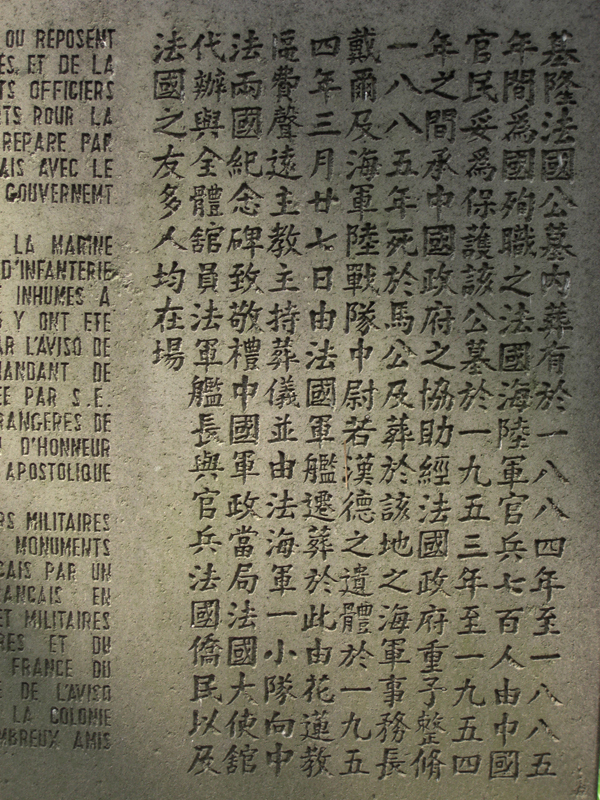 OU REPOSENT
ES ET DE LA
TS OFFICIERS
RTS POUR LA
REPARE PAR
AIS AVEC LE
GOUVERNEMT
LA MARINE
D'INFANTERIE
INHUMES A
Y ONT ETE
AR L'AVISO DE
MANDANT DE
EE PAR S.E.
RANGERES DE
D'HONNEUR
APOSTOLIQUE
RS MILITAIRES
MONUMENTS
CAIS PAR UN
ANCAIS EN
ET MILITAIRES
RES ET DU
FRANCE DU
E DE L'AVISO
LA COLONIE
MBREUX AMIS
基隆法國公墓內葬有於一八八四年至一八八五
年間為國殉職之法國海陸軍官兵七百人由中國
官民妥為保護該公墓於一九五三年至一九五四
年之間承中國政府之協助經法國政府重予整脩
一八八五年死於馬公及葬於該地之海軍事務長
戴爾及海軍陸戰隊中尉若漢德之遺體於一九五
四年三月廿七日由法國軍艦遷葬於此由花蓮教
區費聲遠主教主持葬儀並由法海軍一小隊向中
法兩國紀念碑致敬禮中國軍政當局法國大使館
代辦與全體館員法軍艦長與官兵法國僑民以及
法國之友多人均在場